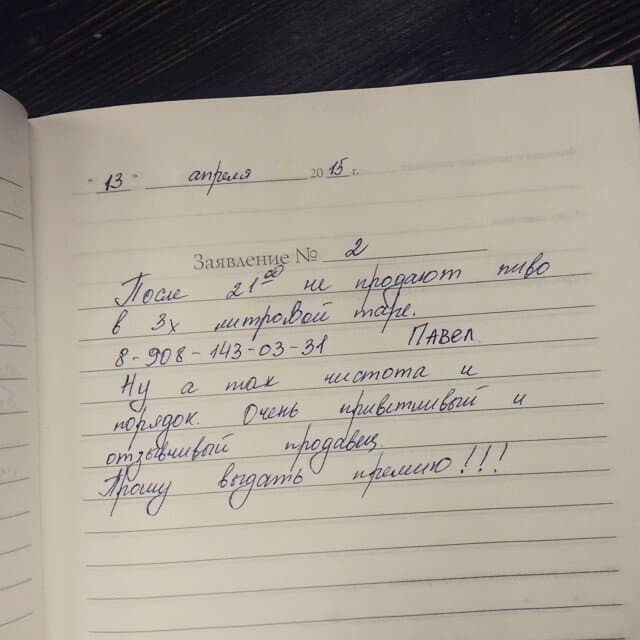 "13" апреля 2015 г.
Заявление № 2
После 21⁰⁰ не продают пиво
в 3х литровой таре.
8-908-143-03-31 Павел.
Ну а так чистота и
порядок. Очень приветливый и
отзывчивый продавец
Прошу выдать премию!!!